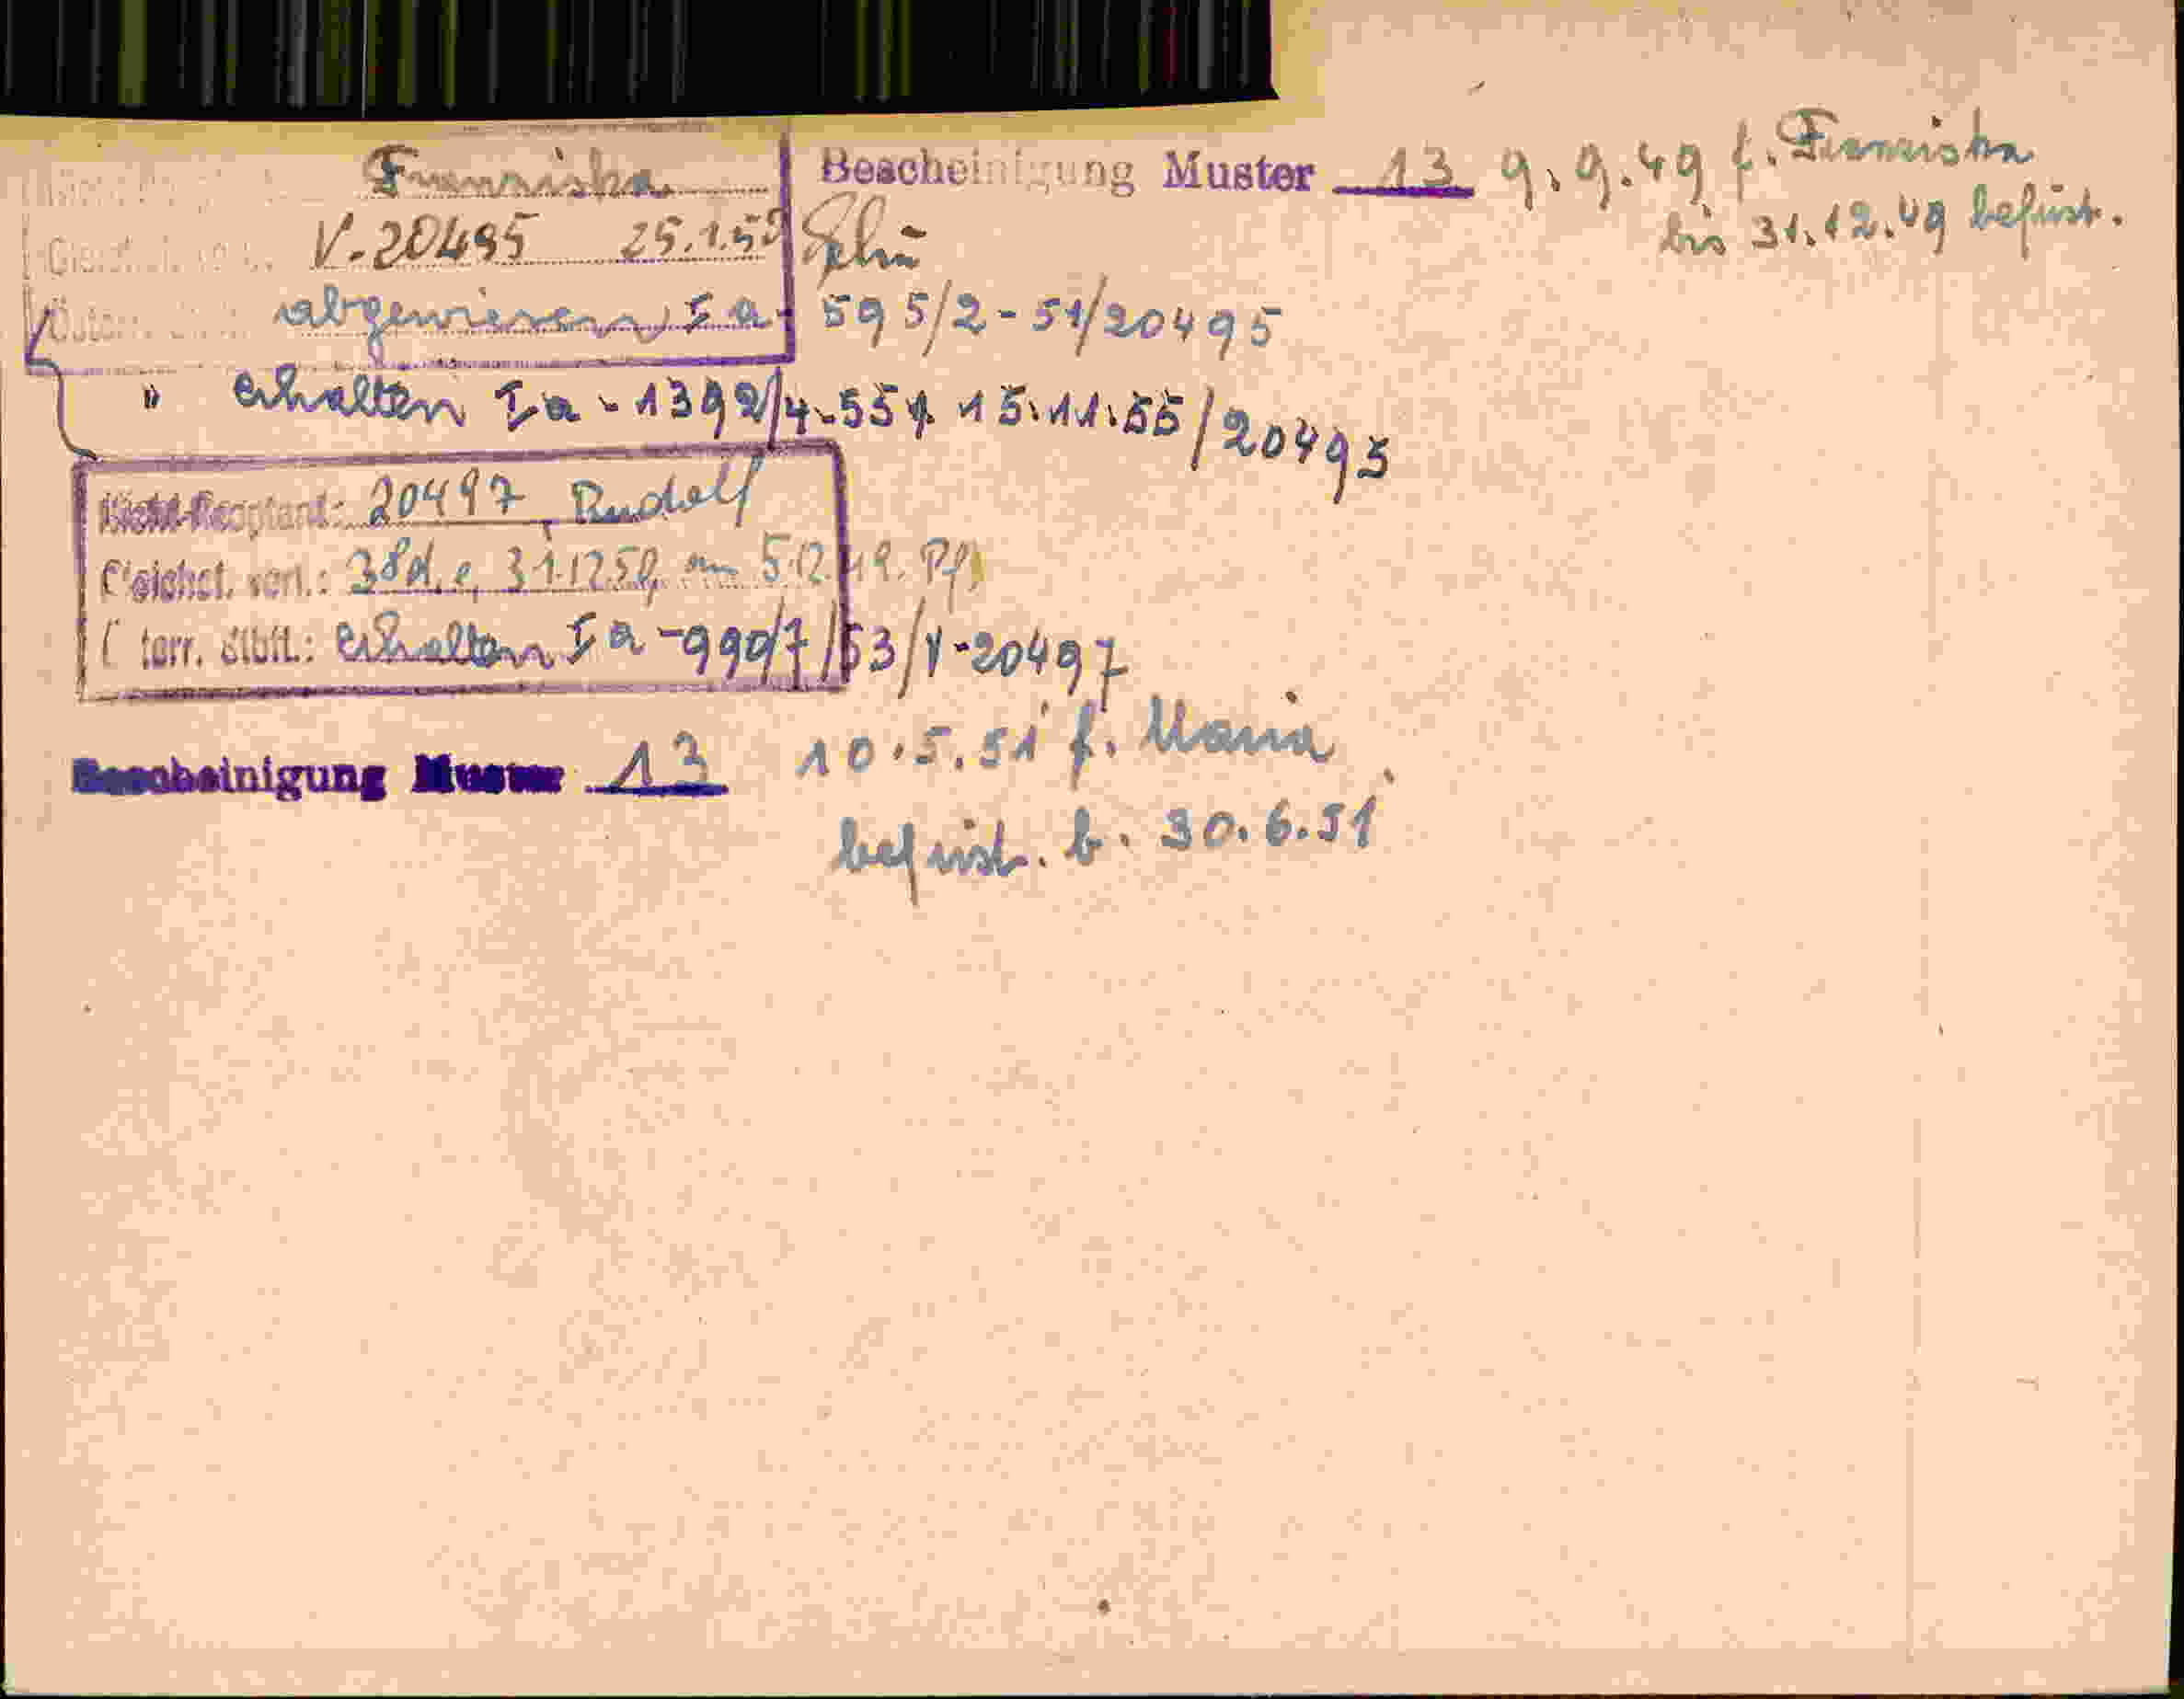 Franziska
V-20495 25.1.50
abgewiesen Ia- 595/2-51/20495
Bescheinigung Muster 13 9.9.49 f. Franziska
bis 31.12.49 befrist.
" erhalten Ia-1392/4-55 15.11.55/20495
20497, Rudolf
vorl.: 31.12.50, 5.12.49.
erhalten Ia-990/7/53/V-20497
Bescheinigung Muster 13 10.5.51 f. Maria
befrist. b. 30.6.51